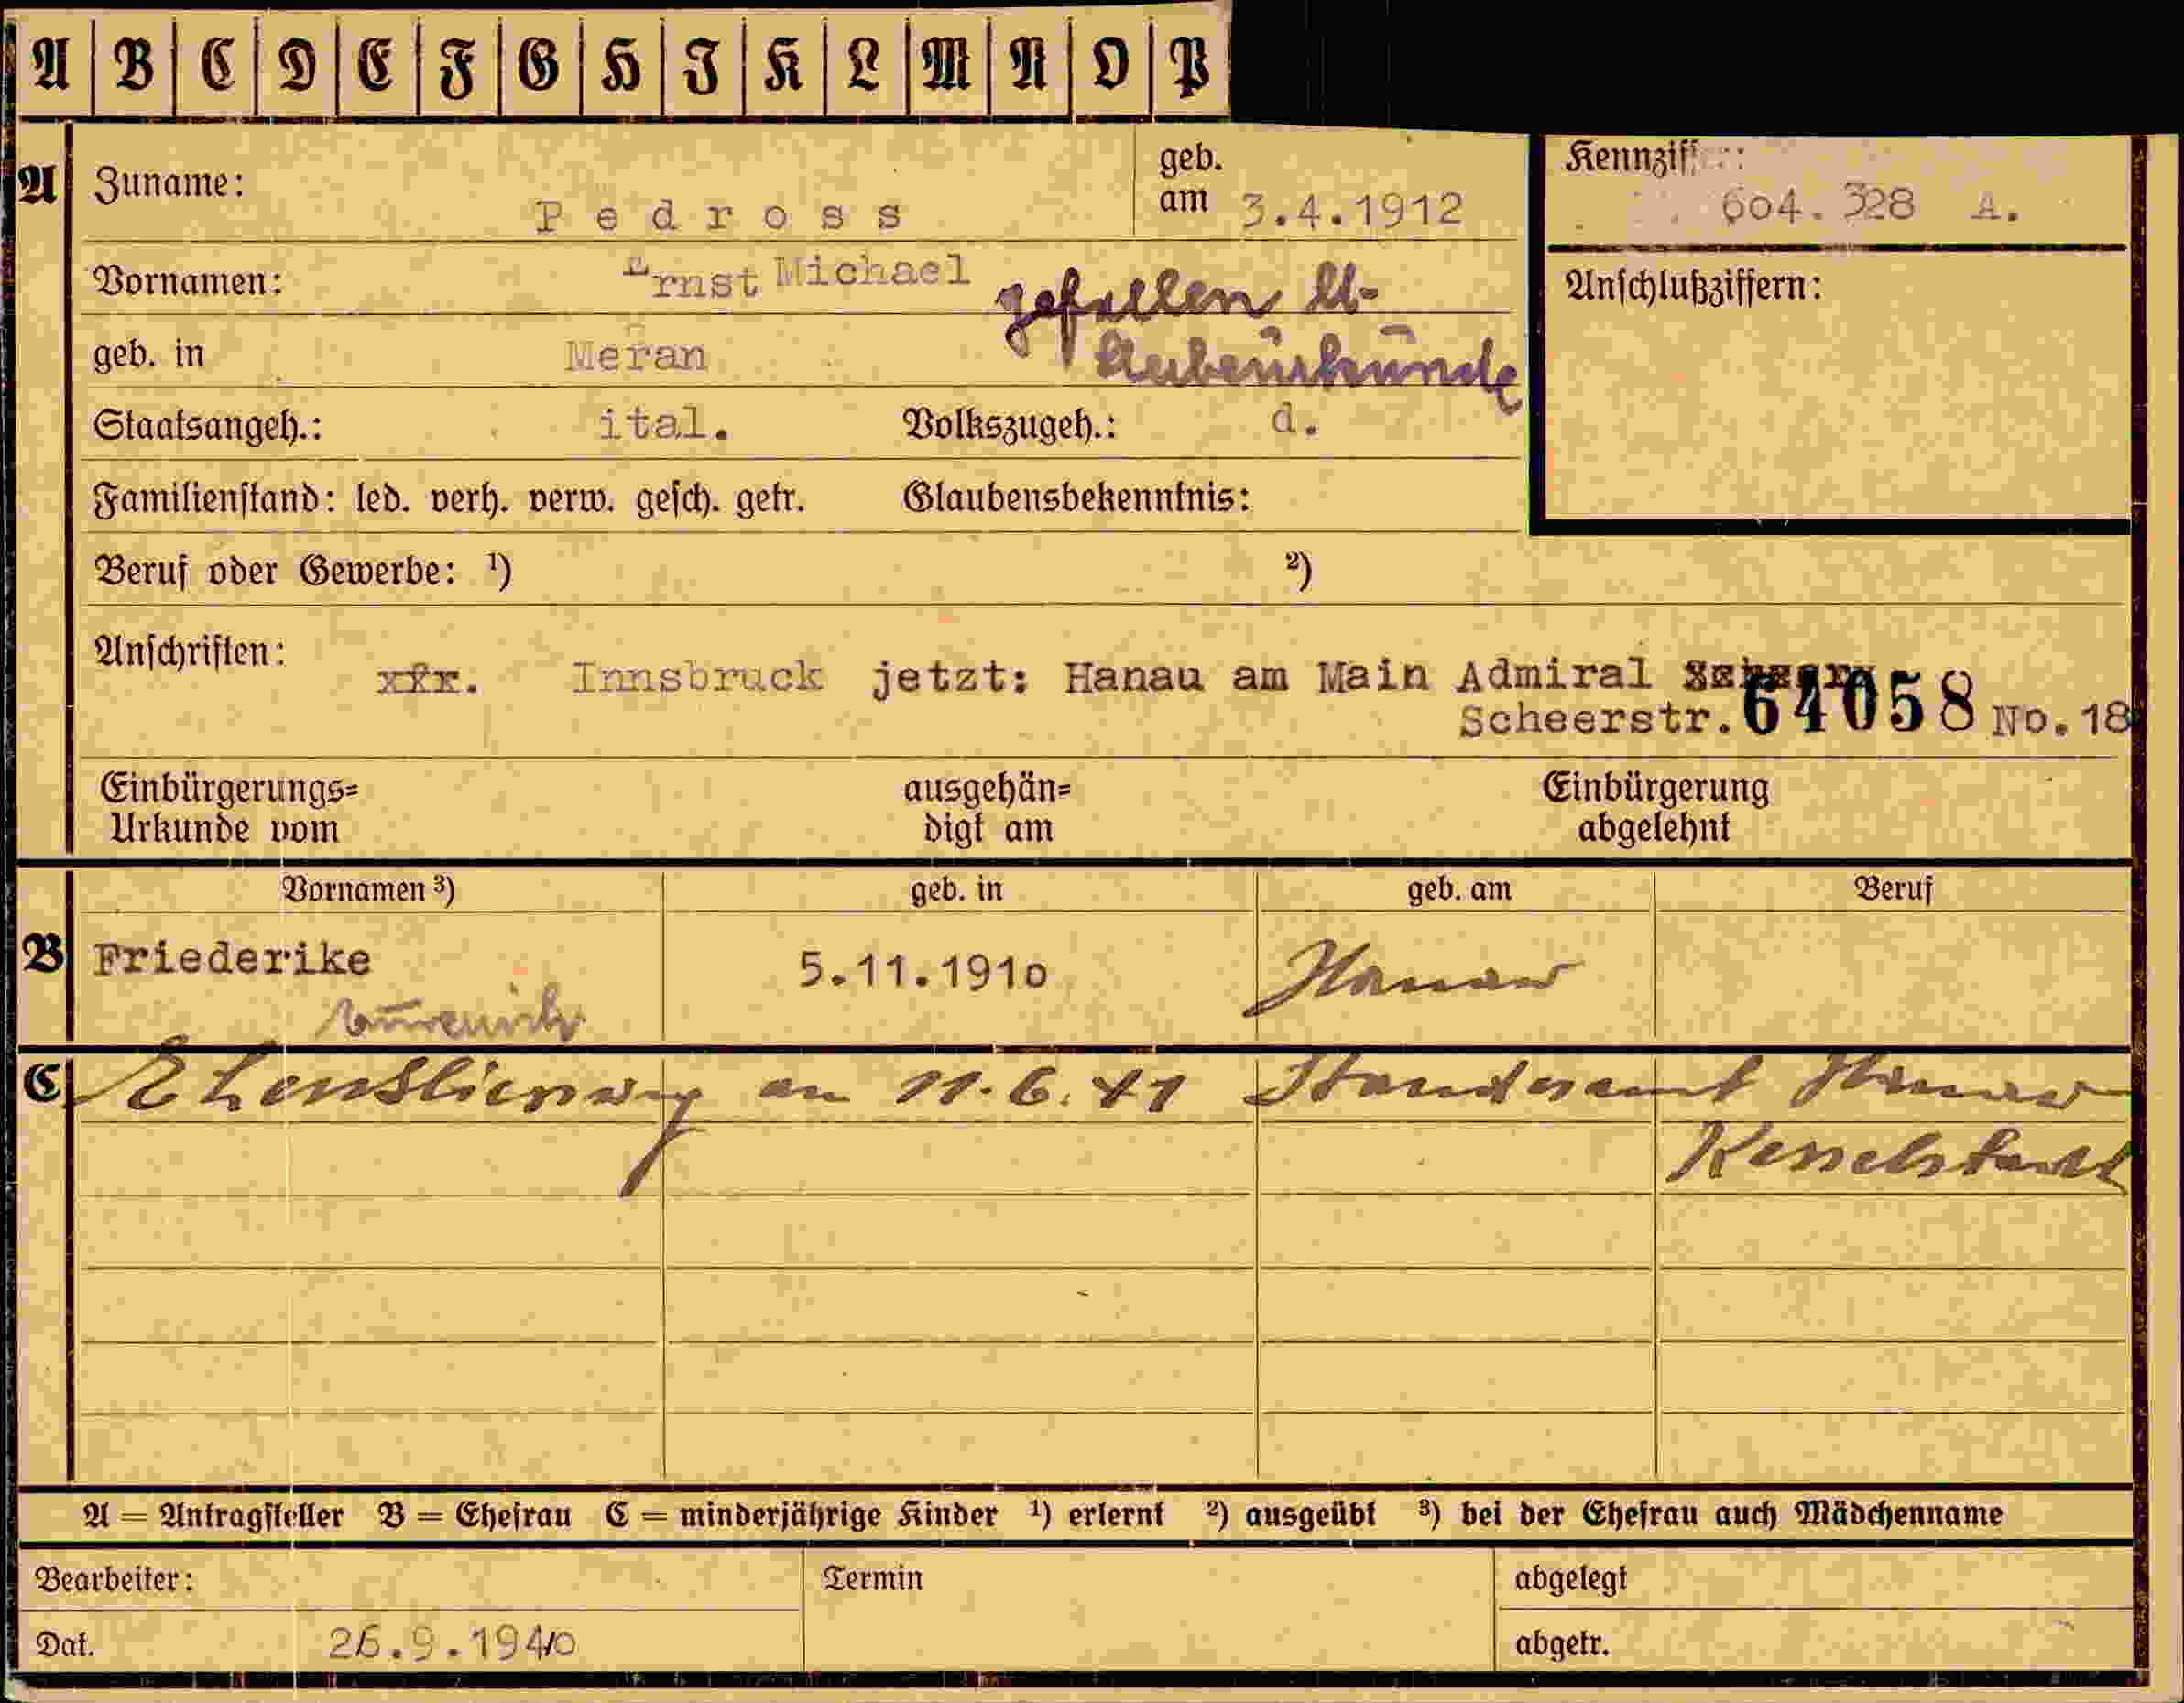 A B C D E F G H I K L M N O P
A Zuname: Pedross geb. am 3.4.1912
Kennziff 604.328 A.
Vornamen: Ernst Michael
gefallen
Anschlußziffern:
geb. in Meran
Staatsangeh.: ital. Volkszugeh.: d.
Familienstand: led. verh. verw. gesch. getr. Glaubensbekenntnis:
Beruf oder Gewerbe: ¹) ²)
Anschriften: Innsbruck jetzt: Hanau am Main Admiral
Scheerstr. 64058 No. 18
Einbürgerungs=
Urkunde vom
ausgehän=
digt am
Einbürgerung
abgelehnt
Vornamen ³) geb. in geb. am Beruf
B Friederike 5.11.1910 Hanau
C Eheschliessung am 11.6.41 Standesamt Hanau
Kesselstadt
A = Antragsteller B = Ehefrau C = minderjährige Kinder ¹) erlernt ²) ausgeübt ³) bei der Ehefrau auch Mädchenname
Bearbeiter: Termin abgelegt
Dat. 26.9.1940 abgetr.